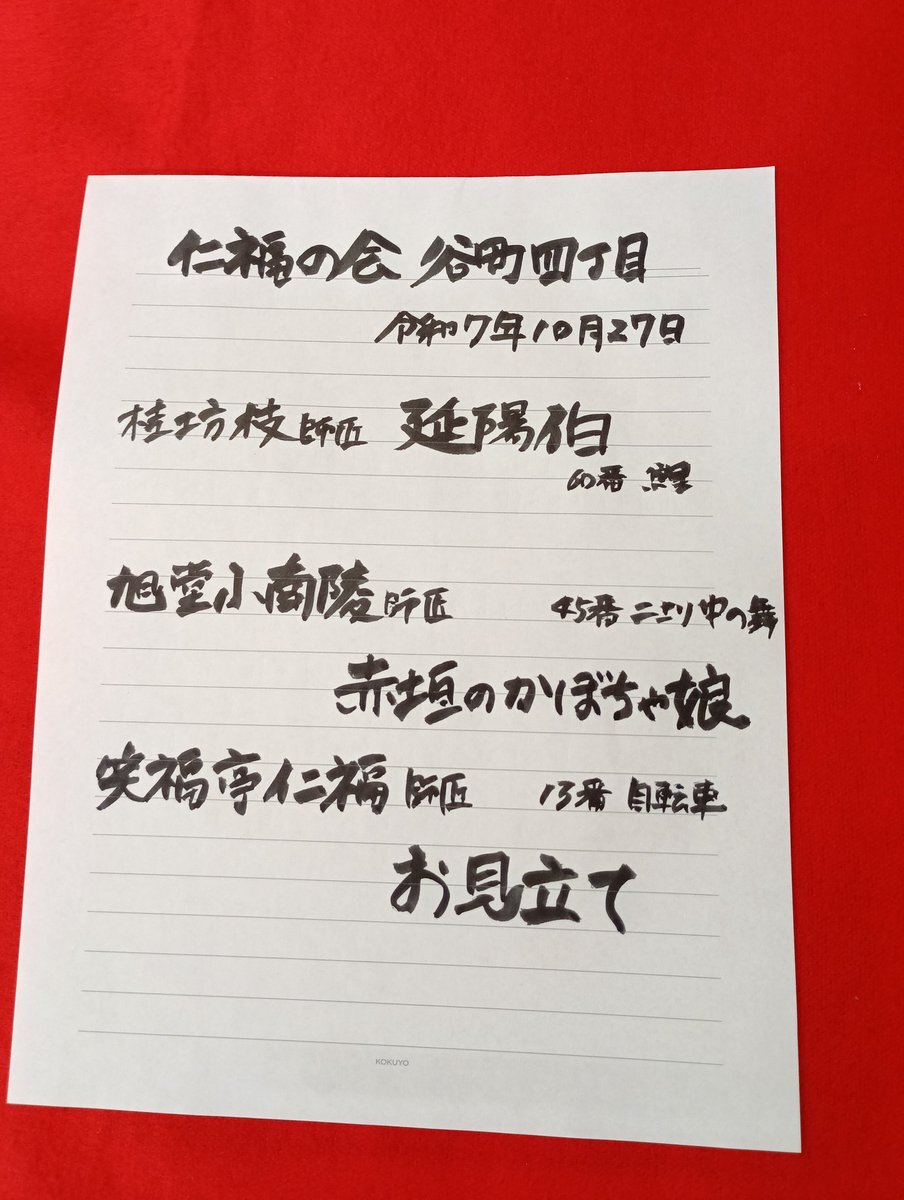 仁福の会 谷町四丁目
令和7年10月27日
桂坊枝師匠 延陽伯
60番
旭堂小南陵師匠 45番 二上り中の舞
赤垣のかぼちゃ娘
笑福亭仁福師匠 13番 自転車
お見立て
KOKUYO